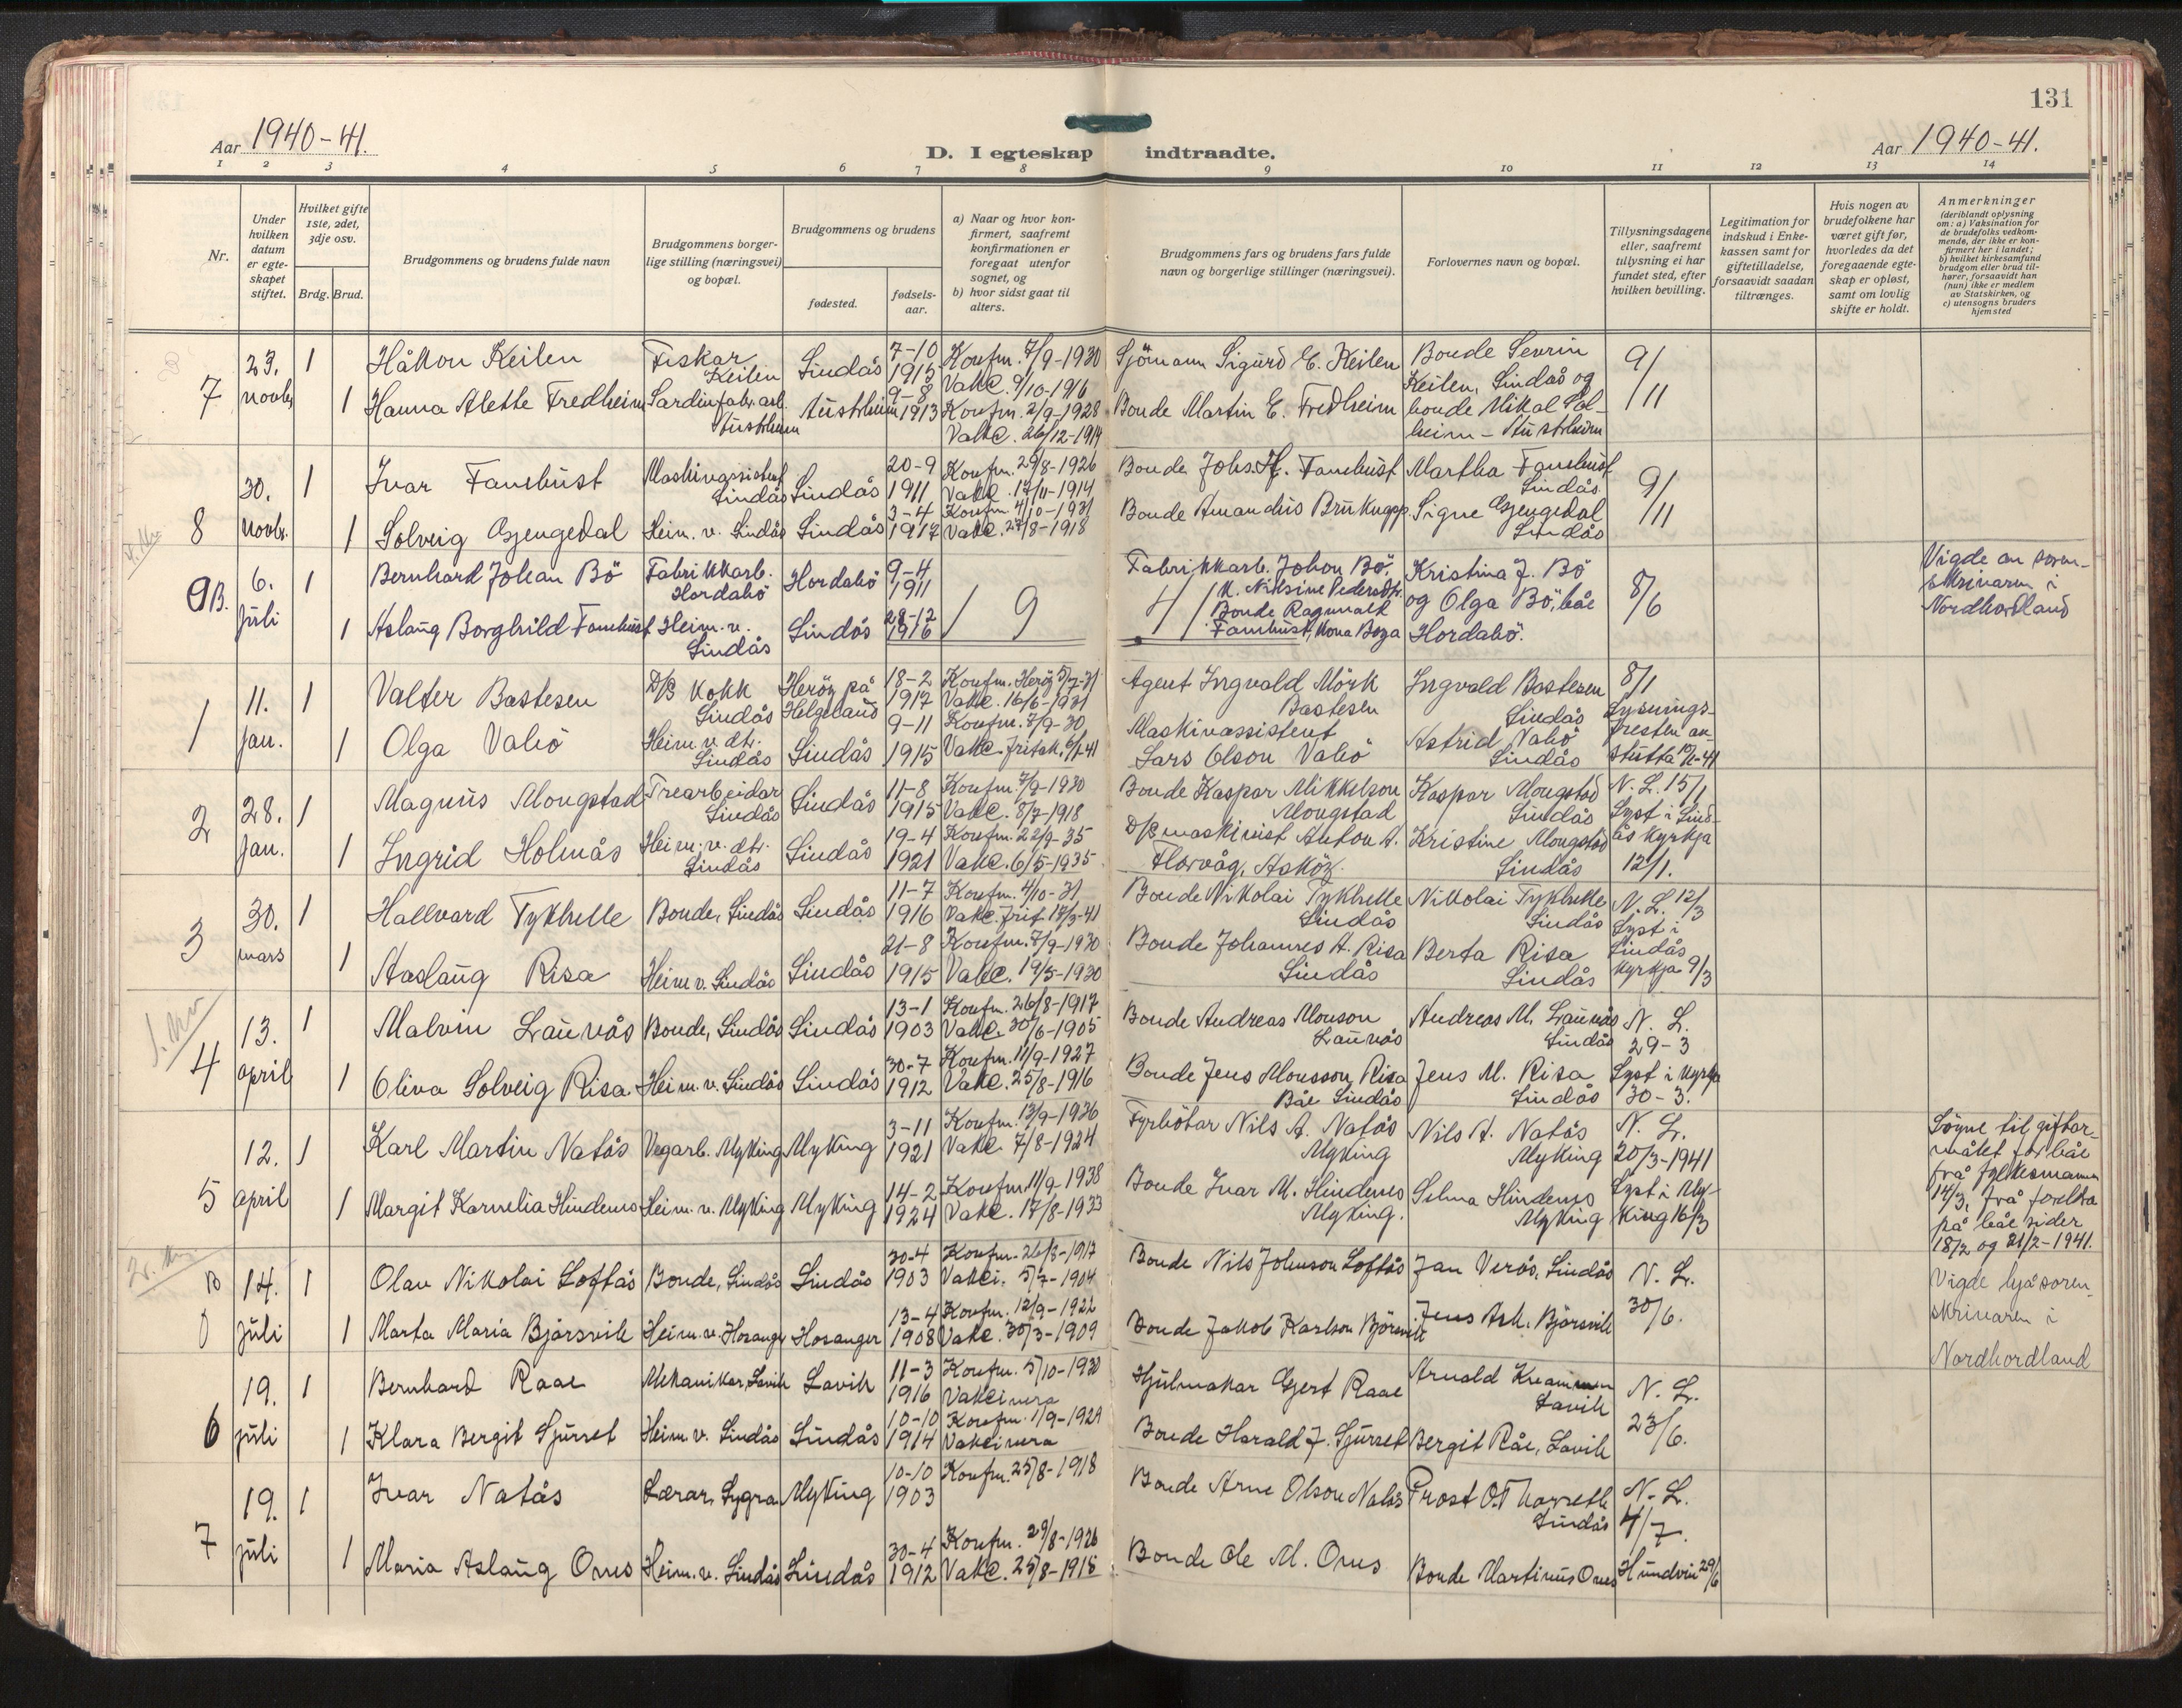 131
Aar 1940-41.
D. I egteskap indtraadte.
Aar 1940-41.
1 2 3 4 5 6 7 8 9 10 11 12 13 14
Nr.
Under hvilken datum er egteskapet stiftet.
Hvilket gifte 1ste, 2det, 3dje osv.
Brdg. Brud.
Brudgommens og brudens fulde navn
Brudgommens borgerlige stilling (næringsvei) og bopæl.
Brudgommens og brudens
fødested.
fødselsaar.
a) Naar og hvor konfirmert, saafremt konfirmationen er foregaat utenfor sognet, og
b) hvor sidst gaat til alters.
Brudgommens fars og brudens fars fulde navn og borgerlige stillinger (næringsvei).
Forlovernes navn og bopæl.
Tillysningsdagene eller, saafremt tillysning ei har fundet sted, efter hvilken bevilling.
Legitimation for indskud i Enkekassen samt for giftetilladelse, forsaavidt saadan tiltrænges.
Hvis nogen av brudefolkene har været gift før, hvorledes da det foregaaende egteskap er opløst, samt om lovlig skifte er holdt.
Anmerkninger
(deriblandt oplysning om: a) Vaksination for de brudefolks vedkommende, der ikke er konfirmert her i landet; b) hvilket kirkesamfund brudgom eller brud tilhører, forsaavidt han (hun) ikke er medlem av Statskirken, og c) utensogns bruders hjemsted
7 23. novbr. 1 Håkon Keilen Fiskar Keilen Lindås 7-10 1915 Konfm. 7/9-1930 Vakc. 9/10-1916 Sjömann Sigurd E. Keilen Bonde Sevrin Keilen, Lindås og 9/11
1 Hanna Alette Fredheim Sardinfabr. arb. Austrheim Austrheim 9-8 1913 Konfm. 2/9-1928 Vakc. 26/12-1914 Bonde Martin E. Fredheim bonde Mikal Solheim - Austrheim
8 30. novbr. 1 Ivar Fanebust Maskinassistent Lindås Lindås 20-9 1911 Konfm. 29/8-1926 Vakc. 17/11-1914 Bonde Johs. H. Fanebust Martha Fanebust Lindås 9/11
1 Solveig Gjengedal Heim. v. Lindås Lindås 3-4 1917 Konfm. 4/10-1931 Vakc. 27/8-1918 Bonde Amandus Signe Gjengedal Lindås
9B. 6. juli 1 Bernhard Johan Bö Fabrikkarb. Hordabö Hordabö 9-4 1911 Fabrikkarb. Johan Bö, K. Niksine Pedersdtr. Kristina J. Bö og Olga Bö, båe Hordabö. 8/6 Vigde av sorenskrivaren i Nordhordland
1 Aslaug Borghild Fanebust Heim. v. Lindås Lindås 28-12 1916 / 9 4 / Bonde Ragnvald Fanebust, kona
1 11. jan. 1 Valter Bastesen D/S kokk Lindås Heröy på Helgeland 18-2 1917 Konfm. Heröy 5/7-31 Vakc. 16/6-1931 Agent Ingvald Mörk Bastesen Ingvald Bastesen Lindås 8/1 Lysningsfresten avstutta 10/1-41
1 Olga Vabö Heim. v. dtr. Lindås Lindås 9-11 1915 Konfm. 7/9-30 Vakc. fritak. 6/1-41 Maskinassistent Lars Olson Vabö Astrid Vabö Lindås
2 28. jan. 1 Magnus Mongstad Trearbeidar Lindås Lindås 11-8 1915 Konfm. 7/9-1930 Vakc. 8/7-1918 Bonde Kaspar Mikkelson Mongstad Kaspar Mongstad Lindås N. L. 15/1 Lyst i Lindås kyrkja 12/1.
1 Ingrid Holmås Heim. v. dtr. Lindås Lindås 19-4 1921 Konfm. 22/9-35 Vakc. 6/5-1935 D/S maskinist Anton A. Florvåg, Asköy. Kristine Mongstad Lindås
3 30. mars 1 Hallvard Tykhelle Bonde, Lindås Lindås 11-7 1916 Konfm. 4/10-31 Vakc. frit. 14/3-41 Bonde Nikolai Tykhelle Lindås Nikolai Tykhelle Lindås N. L. 12/3 Lyst i Lindås kyrkja 9/3
1 Aaslaug Risa Heim v. Lindås Lindås 21-8 1915 Konfm. 7/9-1930 Vakc. 19/5-1930 Bonde Johannes A. Risa Lindås Berta Risa Lindås
4 13. april 1 Malvin Launås Bonde, Lindås Lindås 13-1 1903 Konfm. 26/8-1917 Vakc. 30/6-1905 Bonde Andreas Monson Launås Andreas M. Launås Lindås N. L. 29-3 Lyst i kyrkja 30-3.
1 Oliva Solveig Risa Heim. v. Lindås Lindås 30-7 1912 Konfm. 11/9-1927 Vakc. 25/8-1916 Bonde Jens Monsson Risa Båe Lindås Jens M. Risa Lindås
5 12. april 1 Karl Martin Natås Vegarb. Myking Myking 3-11 1921 Konfm. 13/9-1936 Vakc. 7/8-1924 Fyrbötar Nils A. Natås Myking Nils A. Natås Myking N. L. 20/3-1941 Lyst i Myking 16/3 Löyve til giftarmålet for båe frå fylkesmannen 14/3, frå foreldra på båe sider 18/2 og 21/2-1941.
1 Margit Kornelia Hindenes Heim. v. Myking Myking 14-2 1924 Konfm. 11/9-1938 Vakc. 17/8-1933 Bonde Ivar M. Hindenes Myking. Selma Hindenes Myking
B 14. juli 1 Olav Nikolai Loftås Bonde, Lindås Lindås 30-4 1903 Konfm. 26/8-1917 Vakci. 5/7-1904 Bonde Nils Johnson Loftås Jan Verås, Lindås N. L. 30/6. Vigde hjå sorenskrivaren i Nordhordland
1 Marta Maria Bjørsvik Heim. v. Hosanger Hosanger 13-4 1908 Konfm. 12/9-1922 Vakc. 30/3-1909 Bonde Jakob Karlson Bjørsvik Jens Ask. Björsvik
6 19. juli 1 Bernhard Raae Mekanikar, Lavik Lavik 11-3 1916 Konfm. 5/10-1930 Vakcinera Hjulmakar Gjert Raae Arnold Lavik N. L. 23/6.
1 Klara Bergit Sjurset Heim v. Lindås Lindås 10-10 1914 Konfm. 1/9-1929 Vakcinera Bonde Harald J. Sjurset Bergit Råe, Lavik
7 19. juli 1 Ivar Natås Lærar, Lygra Myking 10-10 1903 Konfm. 25/8-1918 Bonde Arne Olson Natås Prost O. Lindås N. L. 4/7.
1 Maria Aslaug Ones Heim. v. Lindås Lindås 30-4 1912 Konfm. 29/8-1926 Vakc. 25/8-1918 Bonde Ole M. Ones Bonde Martinus Ones Hundvin 29/6